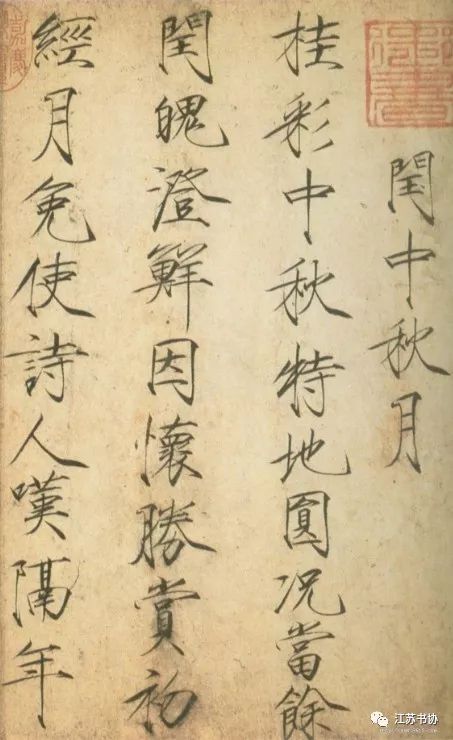 閏中秋月
桂彩中秋特地圓況當餘
閏魄澄鮮因懷勝賞初
經月免使詩人嘆隔年
江苏书协